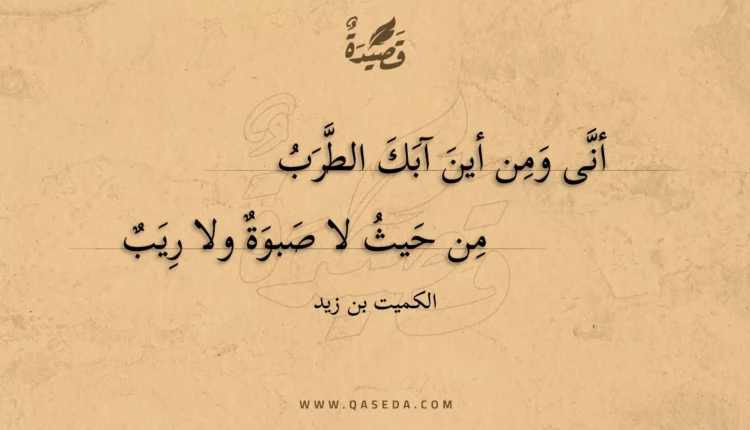 قَصِيدَةٌ
أنَّى وَمِن أينَ آبَكَ الطَّرَبُ
مِن حَيثُ لا صَبوَةٌ ولا رِيَبٌ
الكميت بن زيد
WWW.QASEDA.COM